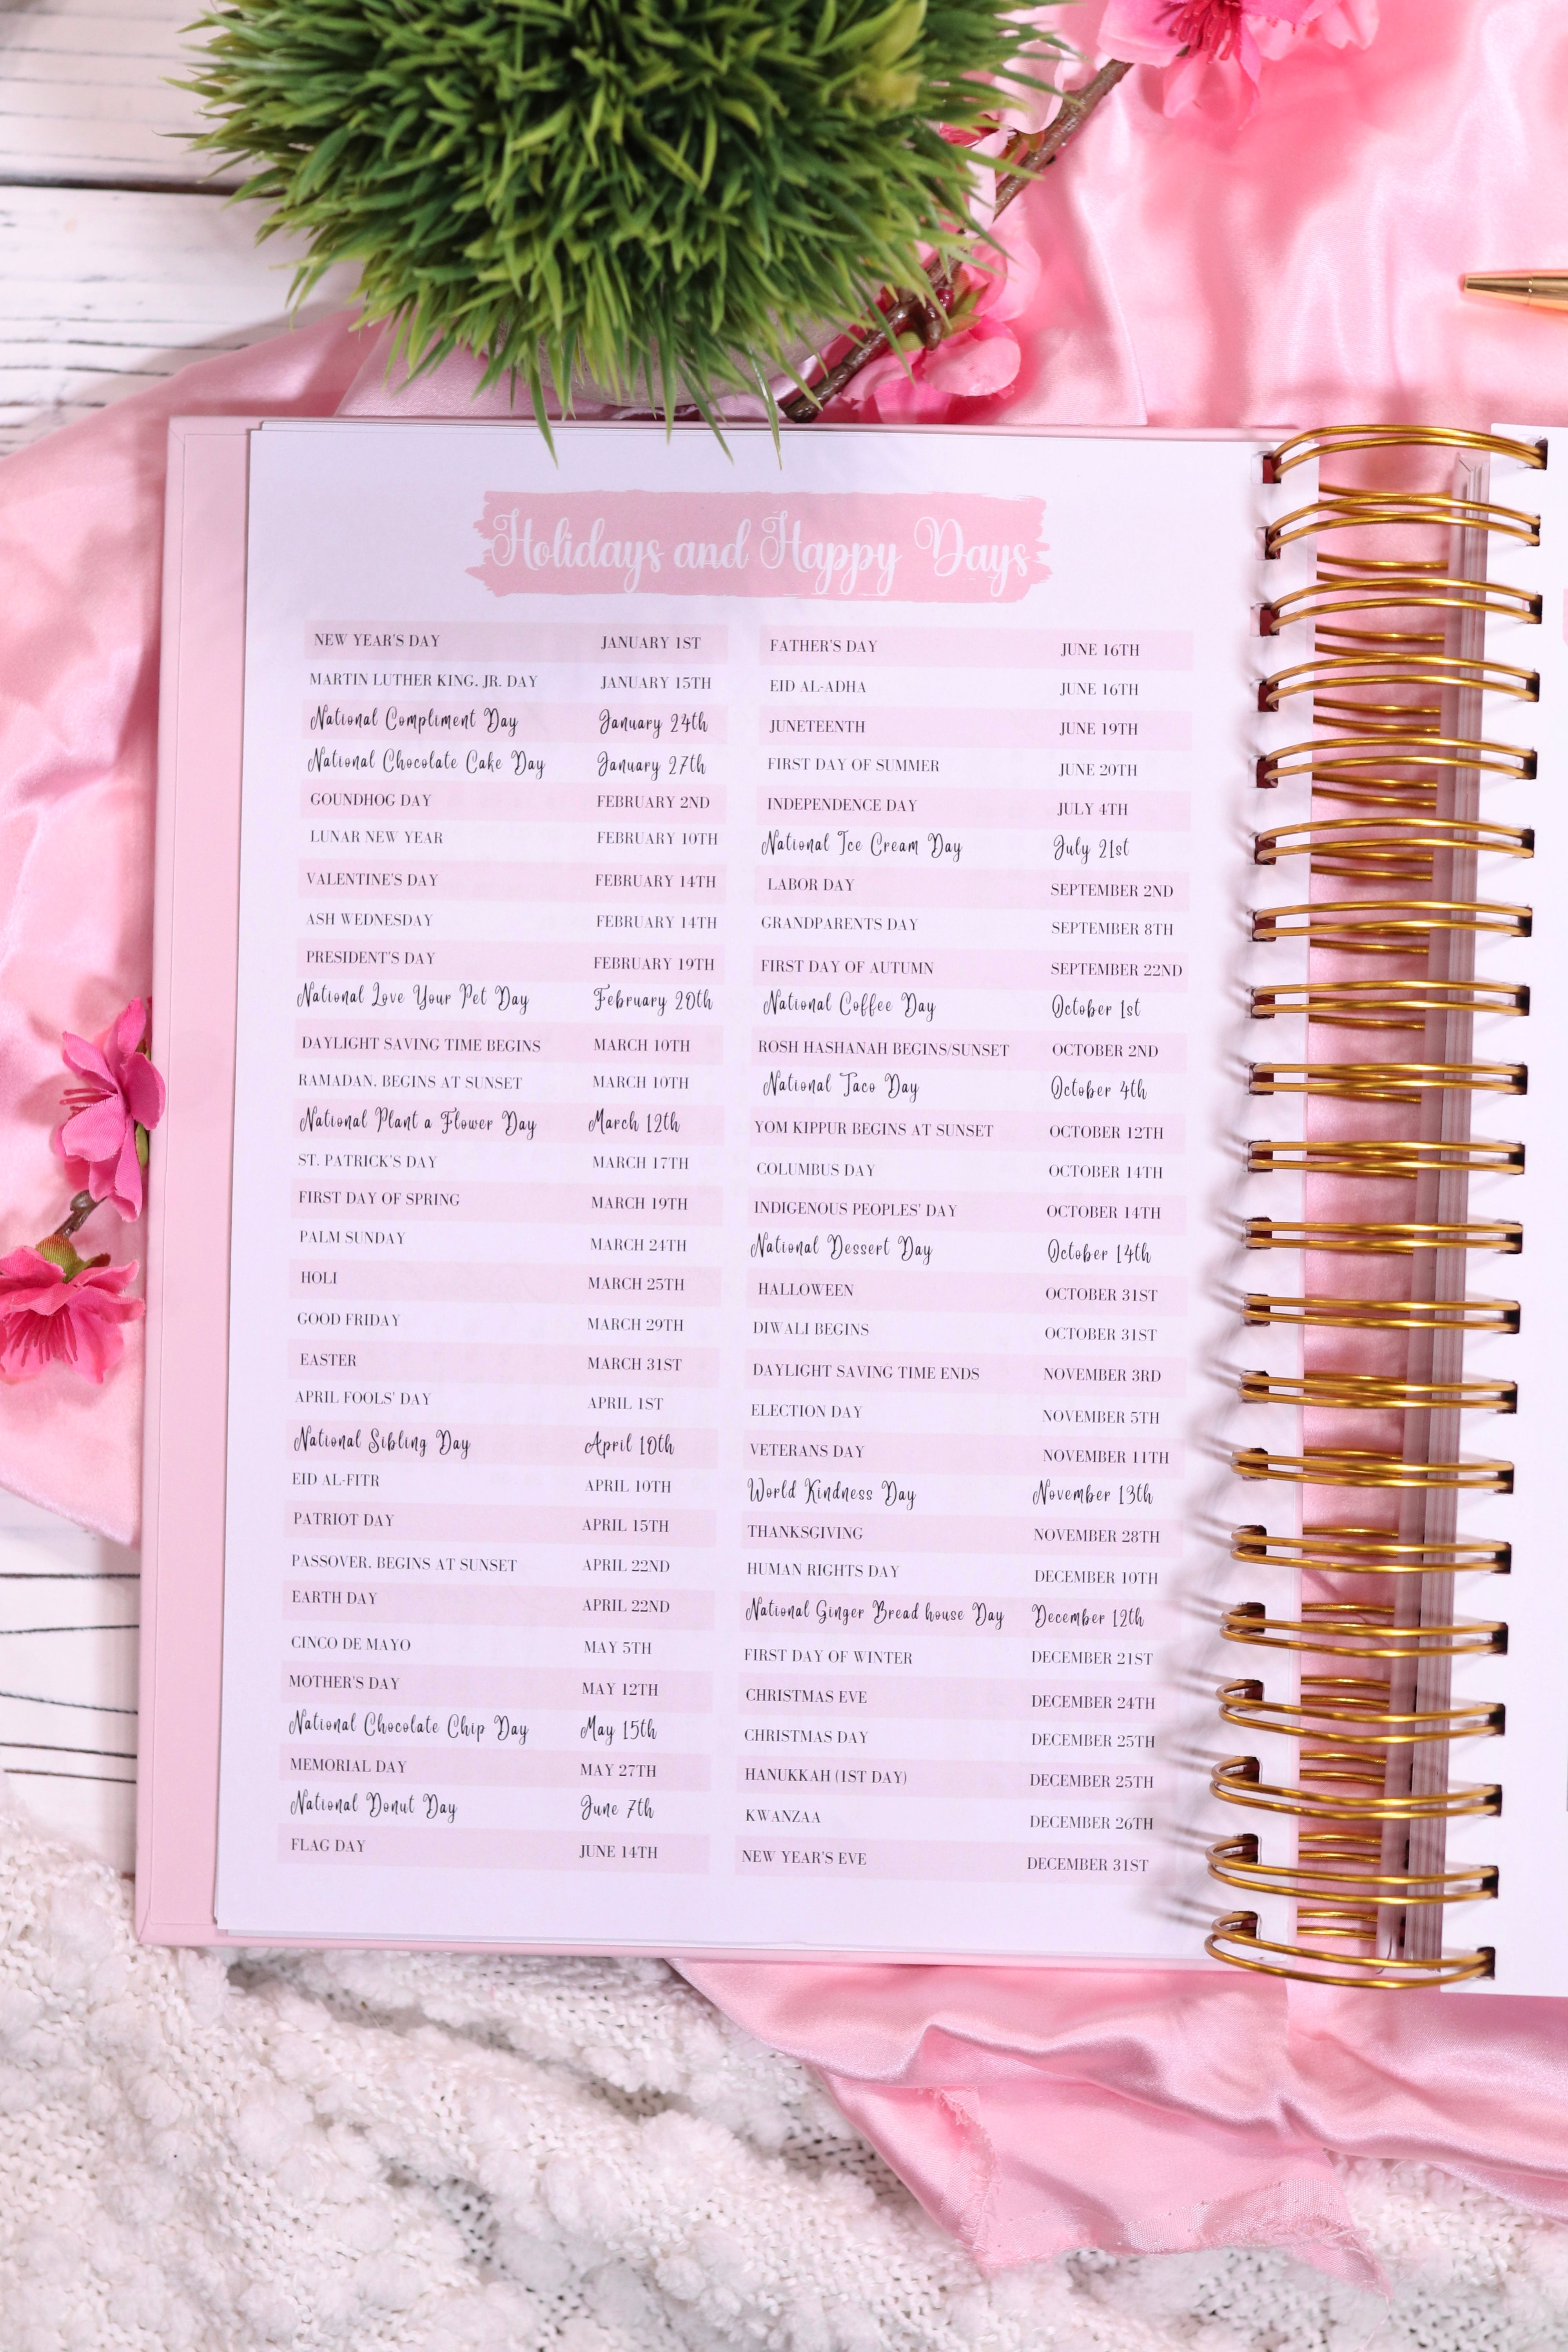 Holidays and Happy Days
NEW YEAR'S DAY JANUARY 1ST
MARTIN LUTHER KING, JR. DAY JANUARY 15TH
National Compliment Day January 24th
National Chocolate Cake Day January 27th
GOUNDHOG DAY FEBRUARY 2ND
LUNAR NEW YEAR FEBRUARY 10TH
VALENTINE'S DAY FEBRUARY 14TH
ASH WEDNESDAY FEBRUARY 14TH
PRESIDENT'S DAY FEBRUARY 19TH
National Love Your Pet Day February 20th
DAYLIGHT SAVING TIME BEGINS MARCH 10TH
RAMADAN, BEGINS AT SUNSET MARCH 10TH
National Plant a Flower Day March 12th
ST. PATRICK'S DAY MARCH 17TH
FIRST DAY OF SPRING MARCH 19TH
PALM SUNDAY MARCH 24TH
HOLI MARCH 25TH
GOOD FRIDAY MARCH 29TH
EASTER MARCH 31ST
APRIL FOOLS' DAY APRIL 1ST
National Sibling Day April 10th
EID AL-FITR APRIL 10TH
PATRIOT DAY APRIL 15TH
PASSOVER, BEGINS AT SUNSET APRIL 22ND
EARTH DAY APRIL 22ND
CINCO DE MAYO MAY 5TH
MOTHER'S DAY MAY 12TH
National Chocolate Chip Day May 15th
MEMORIAL DAY MAY 27TH
National Donut Day June 7th
FLAG DAY JUNE 14TH
FATHER'S DAY JUNE 16TH
EID AL-ADHA JUNE 16TH
JUNETEENTH JUNE 19TH
FIRST DAY OF SUMMER JUNE 20TH
INDEPENDENCE DAY JULY 4TH
National Ice Cream Day July 21st
LABOR DAY SEPTEMBER 2ND
GRANDPARENTS DAY SEPTEMBER 8TH
FIRST DAY OF AUTUMN SEPTEMBER 22ND
National Coffee Day October 1st
ROSH HASHANAH BEGINS/SUNSET OCTOBER 2ND
National Taco Day October 4th
YOM KIPPUR BEGINS AT SUNSET OCTOBER 12TH
COLUMBUS DAY OCTOBER 14TH
INDIGENOUS PEOPLES' DAY OCTOBER 14TH
National Dessert Day October 14th
HALLOWEEN OCTOBER 31ST
DIWALI BEGINS OCTOBER 31ST
DAYLIGHT SAVING TIME ENDS NOVEMBER 3RD
ELECTION DAY NOVEMBER 5TH
VETERANS DAY NOVEMBER 11TH
World Kindness Day November 13th
THANKSGIVING NOVEMBER 28TH
HUMAN RIGHTS DAY DECEMBER 10TH
National Ginger Bread house Day December 12th
FIRST DAY OF WINTER DECEMBER 21ST
CHRISTMAS EVE DECEMBER 24TH
CHRISTMAS DAY DECEMBER 25TH
HANUKKAH (1ST DAY) DECEMBER 25TH
KWANZAA DECEMBER 26TH
NEW YEAR'S EVE DECEMBER 31ST